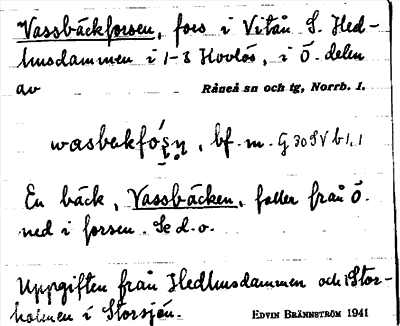 Vassbäckforsen, fors i Vitån S. Hed-
lmsdammen i 1-3 Hovlös, i Ö. delen
av Råneå sn och tg, Norrb. l.
wasbɛkfo̜ṣṇ, bf. m. G 30 SV b 1.1
En bäck, Vassbäcken, faller från Ö.
ned i forsen. Se d. o.
Uppgiften från Hedlmsdammen och Stor-
holmen i Storsjön. EDVIN BRÄNNSTRÖM 1941